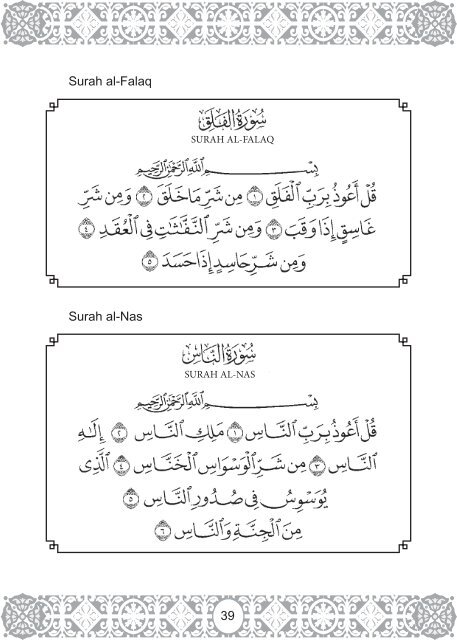 Surah al-Falaq
سُورَةُ الْفَلَقِ
SURAH AL-FALAQ
بِسْمِ اللَّهِ الرَّحْمَٰنِ الرَّحِيمِ
قُلْ أَعُوذُ بِرَبِّ الْفَلَقِ ١ مِن شَرِّ مَا خَلَقَ ٢ وَمِن شَرِّ
غَاسِقٍ إِذَا وَقَبَ ٣ وَمِن شَرِّ النَّفَّاثَاتِ فِي الْعُقَدِ ٤
وَمِن شَرِّ حَاسِدٍ إِذَا حَسَدَ ٥
Surah al-Nas
سُورَةُ النَّاسِ
SURAH AL-NAS
بِسْمِ اللَّهِ الرَّحْمَٰنِ الرَّحِيمِ
قُلْ أَعُوذُ بِرَبِّ النَّاسِ ١ مَلِكِ النَّاسِ ٢ إِلَٰهِ
النَّاسِ ٣ مِن شَرِّ الْوَسْوَاسِ الْخَنَّاسِ ٤ الَّذِي
يُوَسْوِسُ فِي صُدُورِ النَّاسِ ٥
مِنَ الْجِنَّةِ وَالنَّاسِ ٦
39